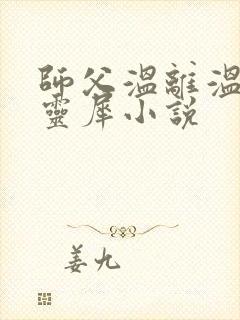 師父溫離溫
靈犀小說
姜九